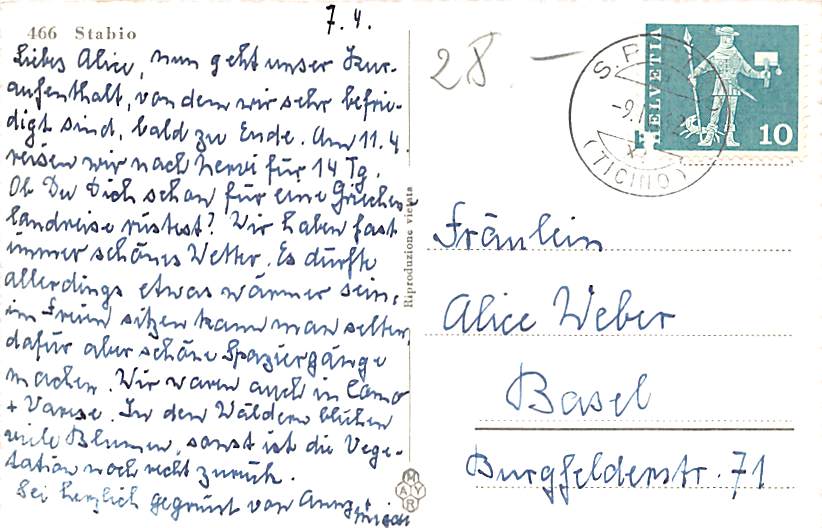 7.4.
466 Stabio
Liebes Alice, nun geht unser Kur-
aufenthalt, von dem wir sehr befrie-
digt sind, bald zu Ende. Am 11.4.
reisen wir nach Nervi für 14 Tg.
Ob Du Dich schon für eine Griechen-
landreise rüstest? Wir haben fast
immer schönes Wetter. Es dürfte
allerdings etwas wärmer sein,
im Freien sitzen kann man selten,
dafür aber schöne Spaziergänge
machen. Wir waren auch in Como
+ Varese. In den Wäldern blühen
viele Blumen, sonst ist die Vege-
tation noch recht zurück.
Sei herzlich gegrüsst von Anny +
Riproduzione vietata
MAYR
28.—
HELVETIA
10
(TICINO)
Fräulein
Alice Weber
Basel
Burgfelderstr. 71